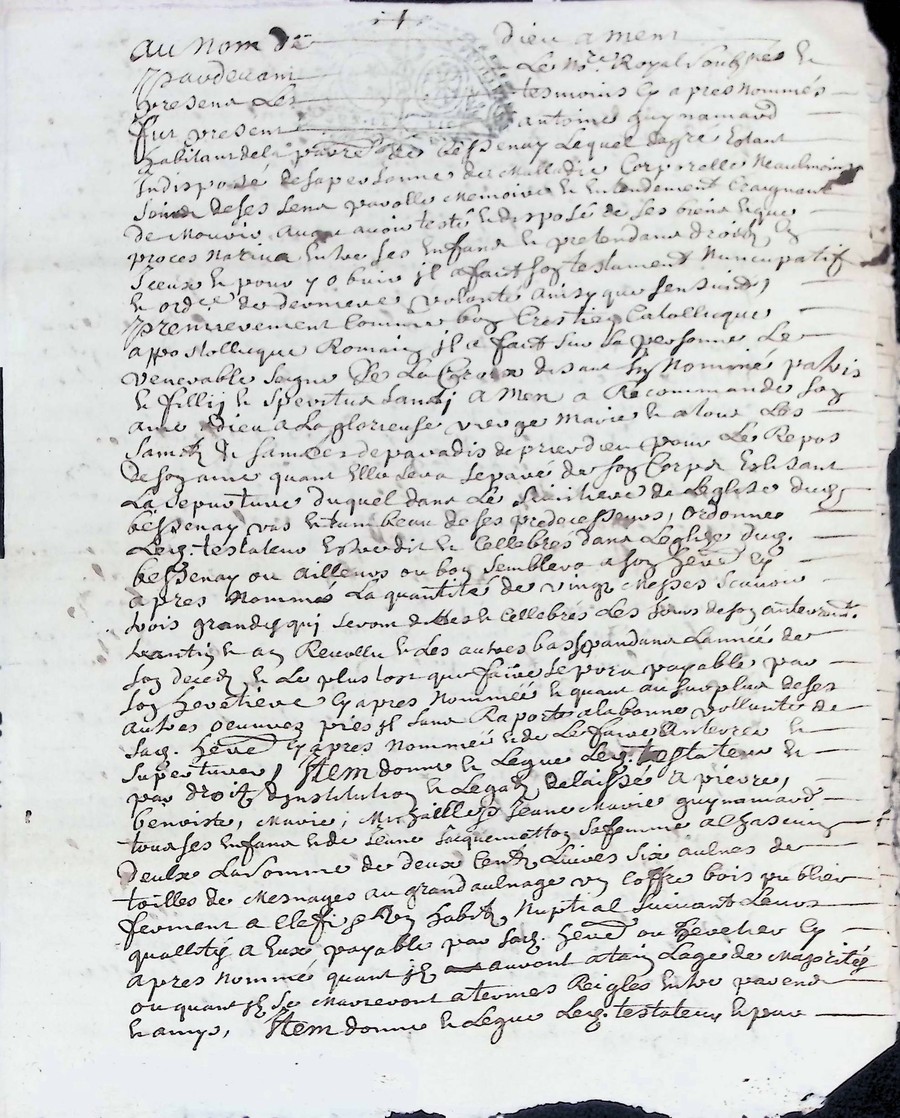 au nom de Dieu amen
Pardevant Le No.re Royal Soubz.né et
presens Les tesmoins Cy apres nommés
fut present antoine guynamard
habitant de la parr.e de bessenay Lequel de gre Estant
Indisposé de sa personne de Malladie Corporelle Neaulmoings
Soing de ses sens parolle Memoire et Entendement Craignant
de Mourir Avant avoir testé et disposé de ses biens et que
proces nariva Entre ses Enffans et pretendans droitz Ey
Iceux et pour y obvir jl a fait soy testament Nuncupatif
et ord.ce de derniere volonté ainsy que sensuit,
Premierement Comme boy Crestiey Catollicque
appostollicque Romaiy jl a fait sur sa personne Le
Venerable Signe de La Croix disant Iny Nominé patris
et fillij et Speritus Santj aMen a Recommandé soy
ame a Dieu a La glorieuse vierge Marie et a tous Les
Saintz et Saintes de paradis de prier dieu pour Le Repos
de soy ame quant Elle sera separé de soy Corps Eslisant
La sepulture duquel dans Le Simitiere de Leglise dud.
bessenay vas et tumbeau de ses predecesseurs, ordonne
Led. testateur Estre dit et Cellebrés dans Leglize dud.
bessenay ou ailleurs ou boy semblera a soy here Cy
apres Nommée La quantité de vingt Messes scavoir
trois grandes quj seront dittes et Cellebrés Les Jours de soy anterrem.t
Et Les autres basse pandant Lannée de
soy deced et Le plus tost que faire se pora payable par
soy heretiere Cy apres Nommée et quant au surplus de ses
autres oeuvres pies jl sans Raporte a la bonne vollunté de
sad. here Cy apres Nommée et de Le faire Anterre et
Item donne et Legue Led. testateur et
par droit dinstitution et Legat delaissé a pierre,
benoiste, Marie, Michaelle et Jeane Marie guynamard
tous ses Enfans et de Jeane Jacquemettoy sa femme a Chascuny
deulx La somme de deux Centz Livres six aulnes de
toilles de Mesnages au grand aulnage uy Coffre bois
ferment a Clef et uy habit Nuptial suivant Leurs
quallités a Eux payable par sad. here ou heretier Cy
apres Nommé quant jlz auront ataiy Lage de Majorités
ou quant jlz se Marieront a termes Reiglés Entre parens
et amys, Item donne et Legue Led. testateur et pour